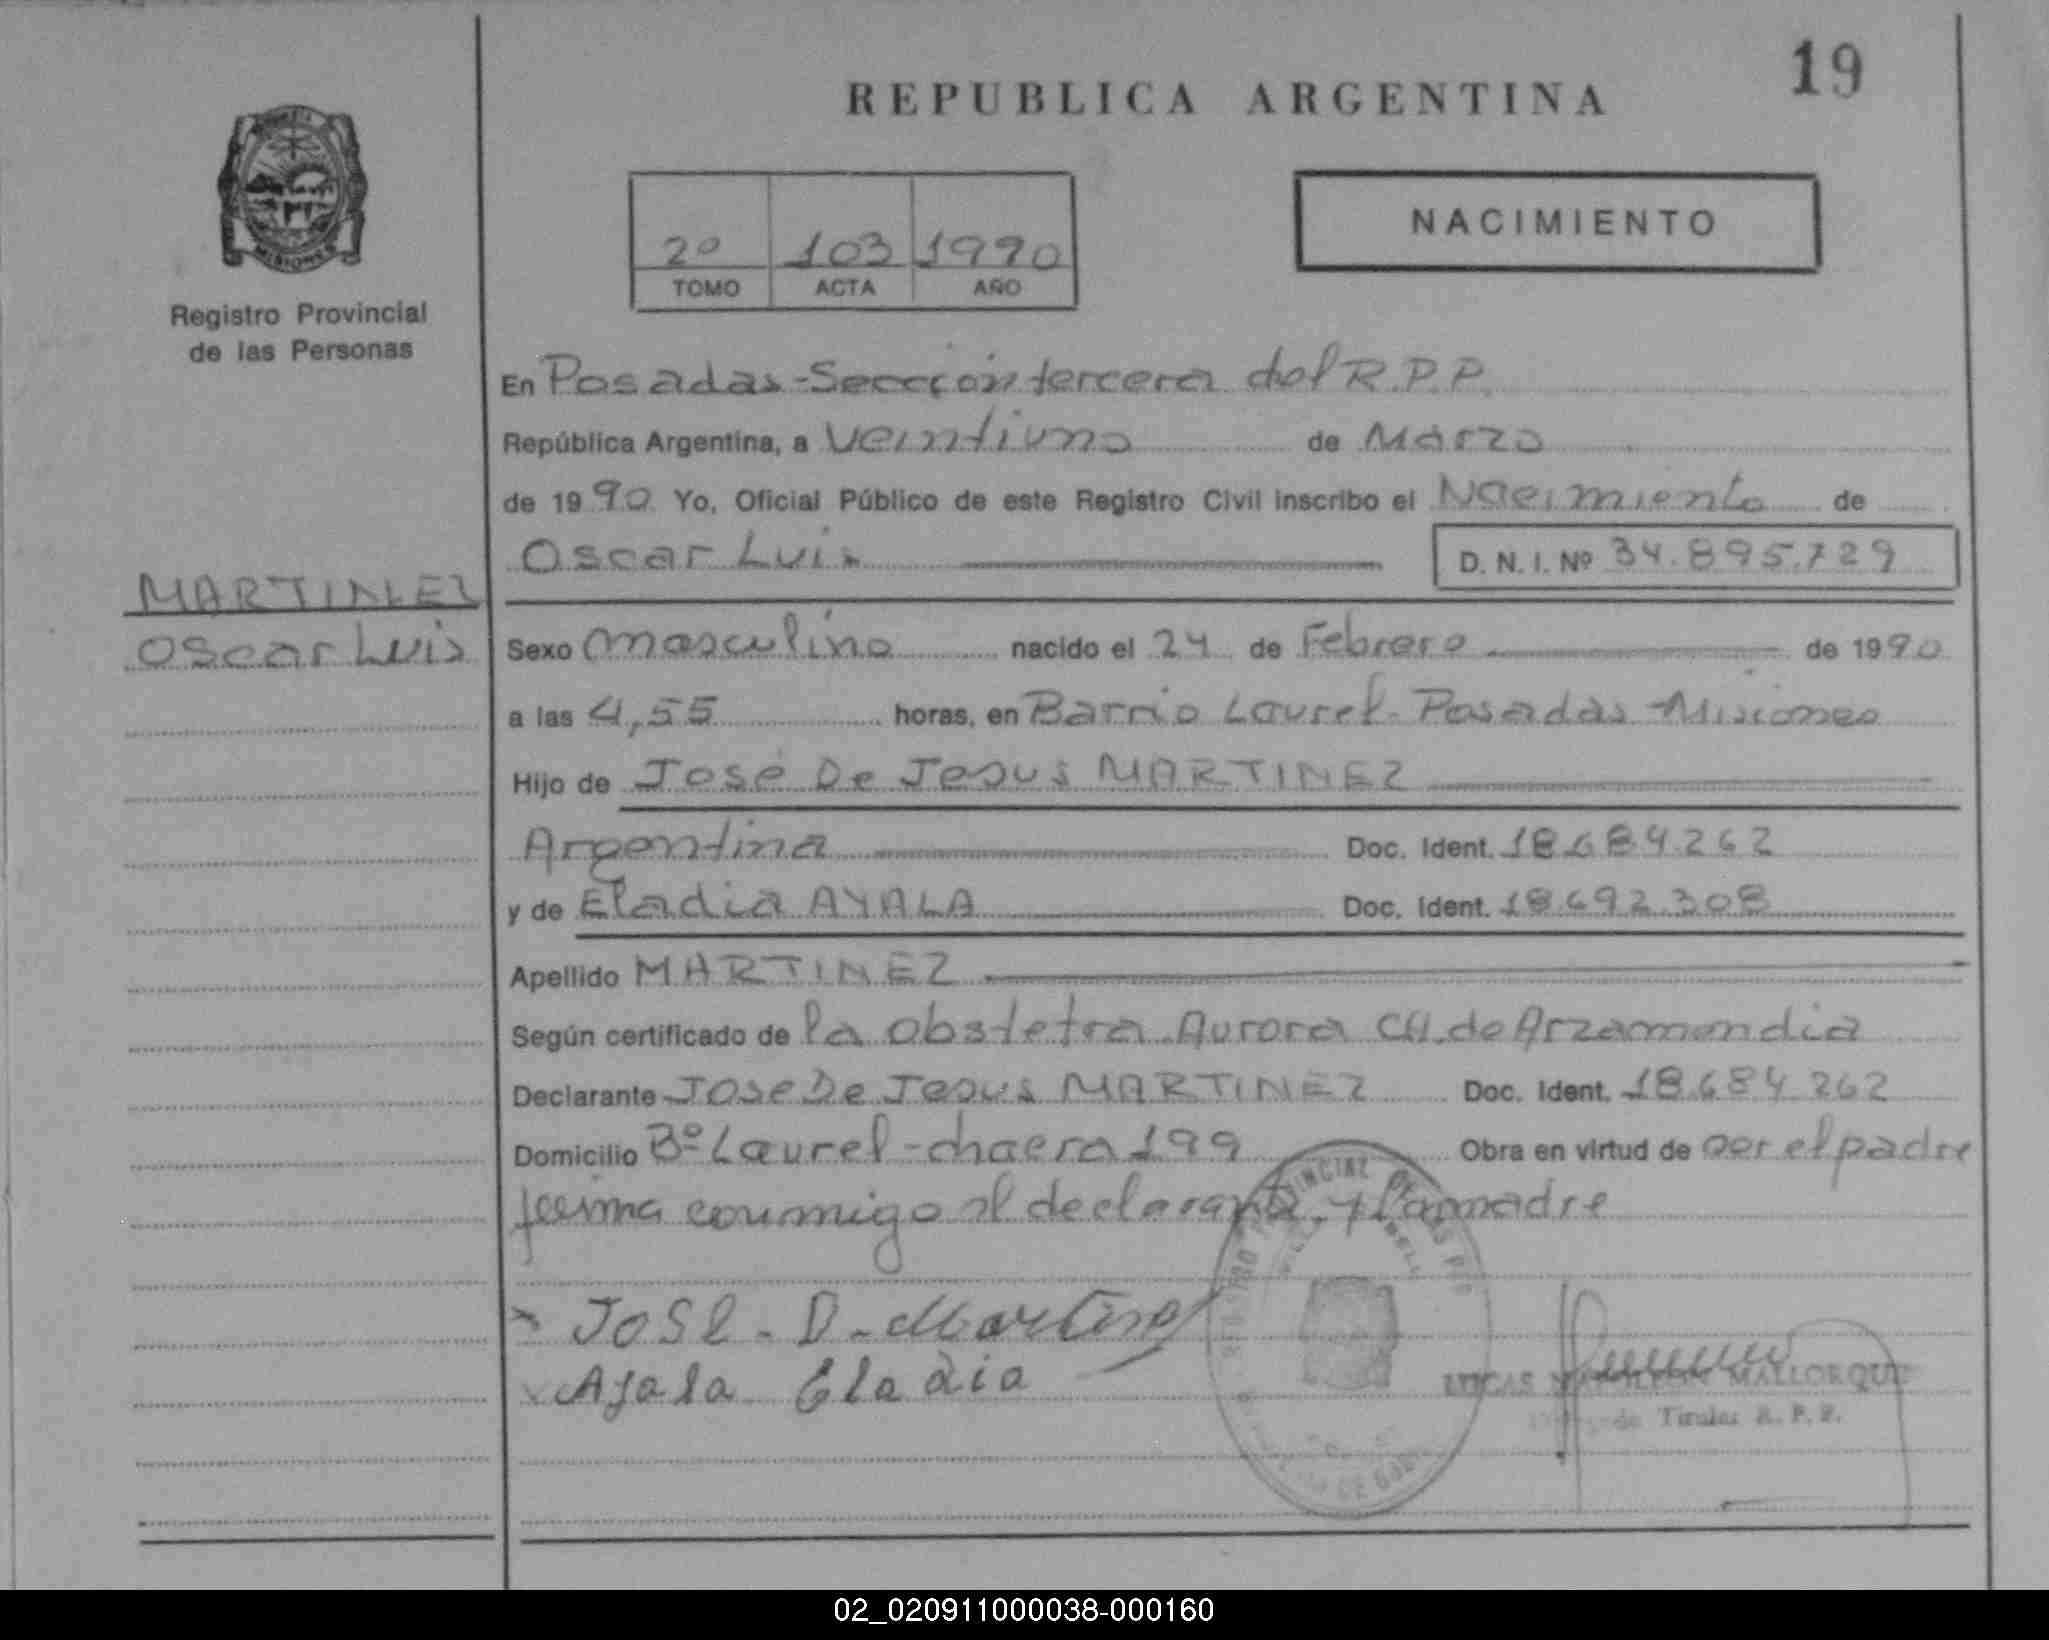 19
REPUBLICA ARGENTINA
MISIONES
Registro Provincial
de las Personas
2º 103 1990
TOMO ACTA AÑO
NACIMIENTO
En Posadas - Seccion tercera del R.P.P.
República Argentina, a veintiuno de Marzo
de 1990 Yo, Oficial Público de este Registro Civil inscribo el Nacimiento de
Oscar Luis D. N. I. Nº 34.895.729
MARTINEZ
Oscar Luis
Sexo masculino nacido el 24 de Febrero de 1990
a las 4,55 horas, en Barrio Laurel - Posadas - Misiones
Hijo de José De Jesus MARTINEZ
Argentina Doc. Ident. 18.684.262
y de Eladia AYALA Doc. Ident. 18.692.308
Apellido MARTINEZ
Según certificado de la obstetra Aurora CH. de Arzamendia
Declarante Jose De Jesus MARTINEZ Doc. Ident. 18.684.262
Domicilio Bº Laurel - chacra 199 Obra en virtud de ser el padre
firma conmigo el declarante y la madre
JOSE - D - Martinez
Ayala Eladia
LUCAS NAPOLEON MALLORQUI
Titular R. P. P.
02_020911000038-000160